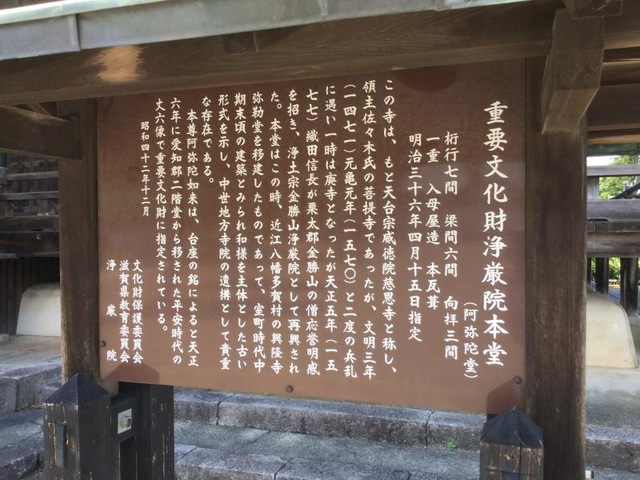 重要文化財浄厳院本堂
（阿弥陀堂）
桁行七間 梁間六間 向拝三間
一重 入母屋造 本瓦葺
明治三十六年四月十五日指定
この寺は、もと天台宗威徳院慈恩寺と称し、
領主佐々木氏の菩提寺であったが、文明三年
（一四七一）元亀元年（一五七〇）と二度の兵乱
に遇い一時は廃寺となったが天正五年（一五
七七）織田信長が栗太郡金勝山の僧応誉明感
を招き、浄土宗金勝山浄厳院として再興され
た。本堂はこの時、近江八幡多賀村の興隆寺
弥勒堂を移建したものであって、室町時代中
期末頃の建築とみられ和様を主体とした古い
形式を示し、中世地方寺院の遺構として貴重
な存在である。
本尊阿弥陀如来は、台座の銘によると天正
六年に愛知郡二階堂から移された平安時代の
丈六像で重要文化財に指定されている。
昭和四十二年十二月
文化財保護委員会
滋賀県教育委員会
浄厳院